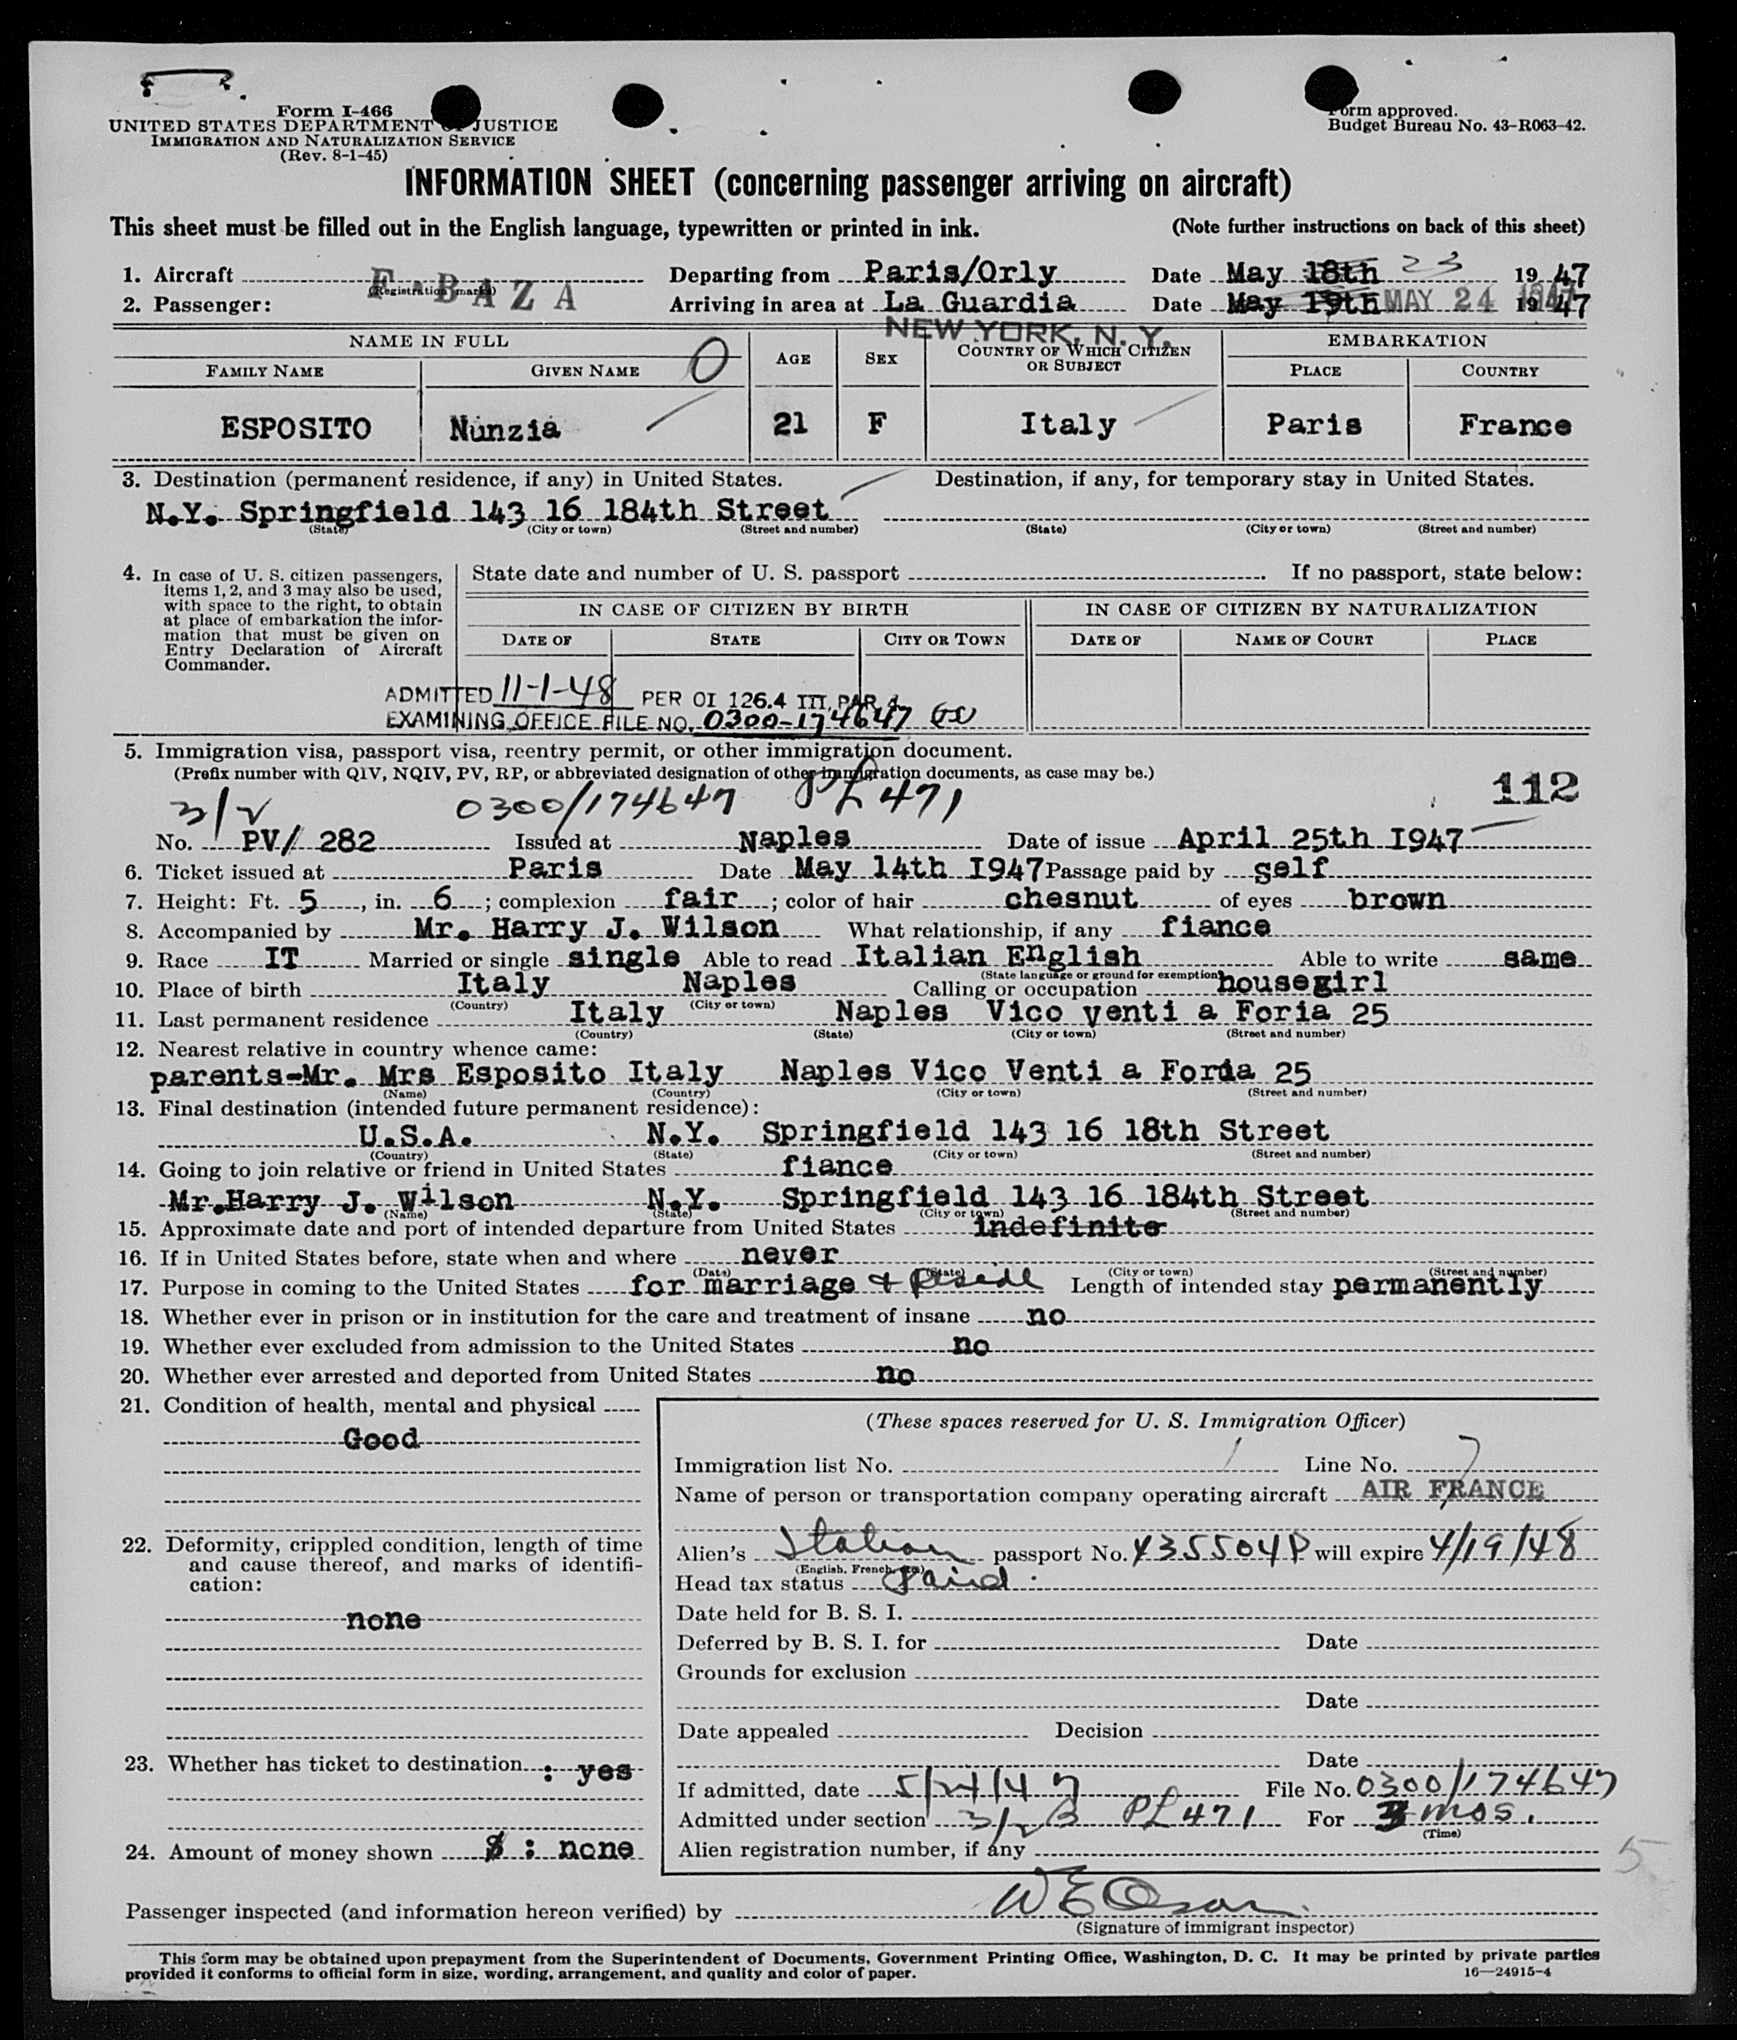 Form I-466
UNITED STATES DEPARTMENT OF JUSTICE
IMMIGRATION AND NATURALIZATION SERVICE
(Rev. 8-1-45)
Form approved.
Budget Bureau No. 43-R063-42.
INFORMATION SHEET (concerning passenger arriving on aircraft)
This sheet must be filled out in the English language, typewritten or printed in ink. (Note further instructions on back of this sheet)
1. Aircraft F-BAZA (Registration marks) Departing from Paris/Orly Date May 18th 23 1947
2. Passenger: Arriving in area at La Guardia Date May 19th MAY 24 1947 1947
NEW YORK, N. Y.
NAME IN FULL O AGE SEX COUNTRY OF WHICH CITIZEN OR SUBJECT EMBARKATION
FAMILY NAME GIVEN NAME PLACE COUNTRY
ESPOSITO Nunzia 21 F Italy Paris France
3. Destination (permanent residence, if any) in United States. Destination, if any, for temporary stay in United States.
N.Y. Springfield 143 16 184th Street
(State) (City or town) (Street and number) (State) (City or town) (Street and number)
4. In case of U. S. citizen passengers, items 1, 2, and 3 may also be used, with space to the right, to obtain at place of embarkation the information that must be given on Entry Declaration of Aircraft Commander.
State date and number of U. S. passport If no passport, state below:
IN CASE OF CITIZEN BY BIRTH IN CASE OF CITIZEN BY NATURALIZATION
DATE OF STATE CITY OR TOWN DATE OF NAME OF COURT PLACE
ADMITTED 11-1-48 PER OI 126.4 III, PAR 4
EXAMINING OFFICE FILE NO. 0300-174647
5. Immigration visa, passport visa, reentry permit, or other immigration document.
(Prefix number with QIV, NQIV, PV, RP, or abbreviated designation of other immigration documents, as case may be.)
3/2 0300/174647 PL 471 112
No. PV/ 282 Issued at Naples Date of issue April 25th 1947
6. Ticket issued at Paris Date May 14th 1947 Passage paid by self
7. Height: Ft. 5, in. 6; complexion fair; color of hair chesnut of eyes brown
8. Accompanied by Mr. Harry J. Wilson What relationship, if any fiance
9. Race IT Married or single single Able to read Italian English Able to write same
(State language or ground for exemption)
10. Place of birth Italy Naples Calling or occupation housegirl
(Country) (City or town)
11. Last permanent residence Italy Naples Vico venti a Foria 25
(Country) (State) (City or town) (Street and number)
12. Nearest relative in country whence came:
parents-Mr. Mrs Esposito Italy Naples Vico Venti a Foria 25
(Name) (Country) (City or town) (Street and number)
13. Final destination (intended future permanent residence):
U.S.A. N.Y. Springfield 143 16 18th Street
(Country) (State) (City or town) (Street and number)
14. Going to join relative or friend in United States fiance
Mr.Harry J. Wilson N.Y. Springfield 143 16 184th Street
(Name) (State) (City or town) (Street and number)
15. Approximate date and port of intended departure from United States indefinite
16. If in United States before, state when and where never
(Date) (State) (City or town) (Street and number)
17. Purpose in coming to the United States for marriage + reside Length of intended stay permanently
18. Whether ever in prison or in institution for the care and treatment of insane no
19. Whether ever excluded from admission to the United States no
20. Whether ever arrested and deported from United States no
21. Condition of health, mental and physical
Good
22. Deformity, crippled condition, length of time and cause thereof, and marks of identification:
none
23. Whether has ticket to destination : yes
24. Amount of money shown $ : none
(These spaces reserved for U. S. Immigration Officer)
Immigration list No. 1 Line No. 7
Name of person or transportation company operating aircraft AIR FRANCE
Alien's Italian passport No. 435504P will expire 4/19/48
(English, French, etc.)
Head tax status Paid
Date held for B. S. I.
Deferred by B. S. I. for Date
Grounds for exclusion
Date
Date appealed Decision
Date
If admitted, date 5/24/47 File No. 0300/174647
Admitted under section 3/2 B PL 471 For 3 mos.
(Time)
Alien registration number, if any
5
Passenger inspected (and information hereon verified) by
(Signature of immigrant inspector)
This form may be obtained upon prepayment from the Superintendent of Documents, Government Printing Office, Washington, D. C. It may be printed by private parties
provided it conforms to official form in size, wording, arrangement, and quality and color of paper. 16—24915-4